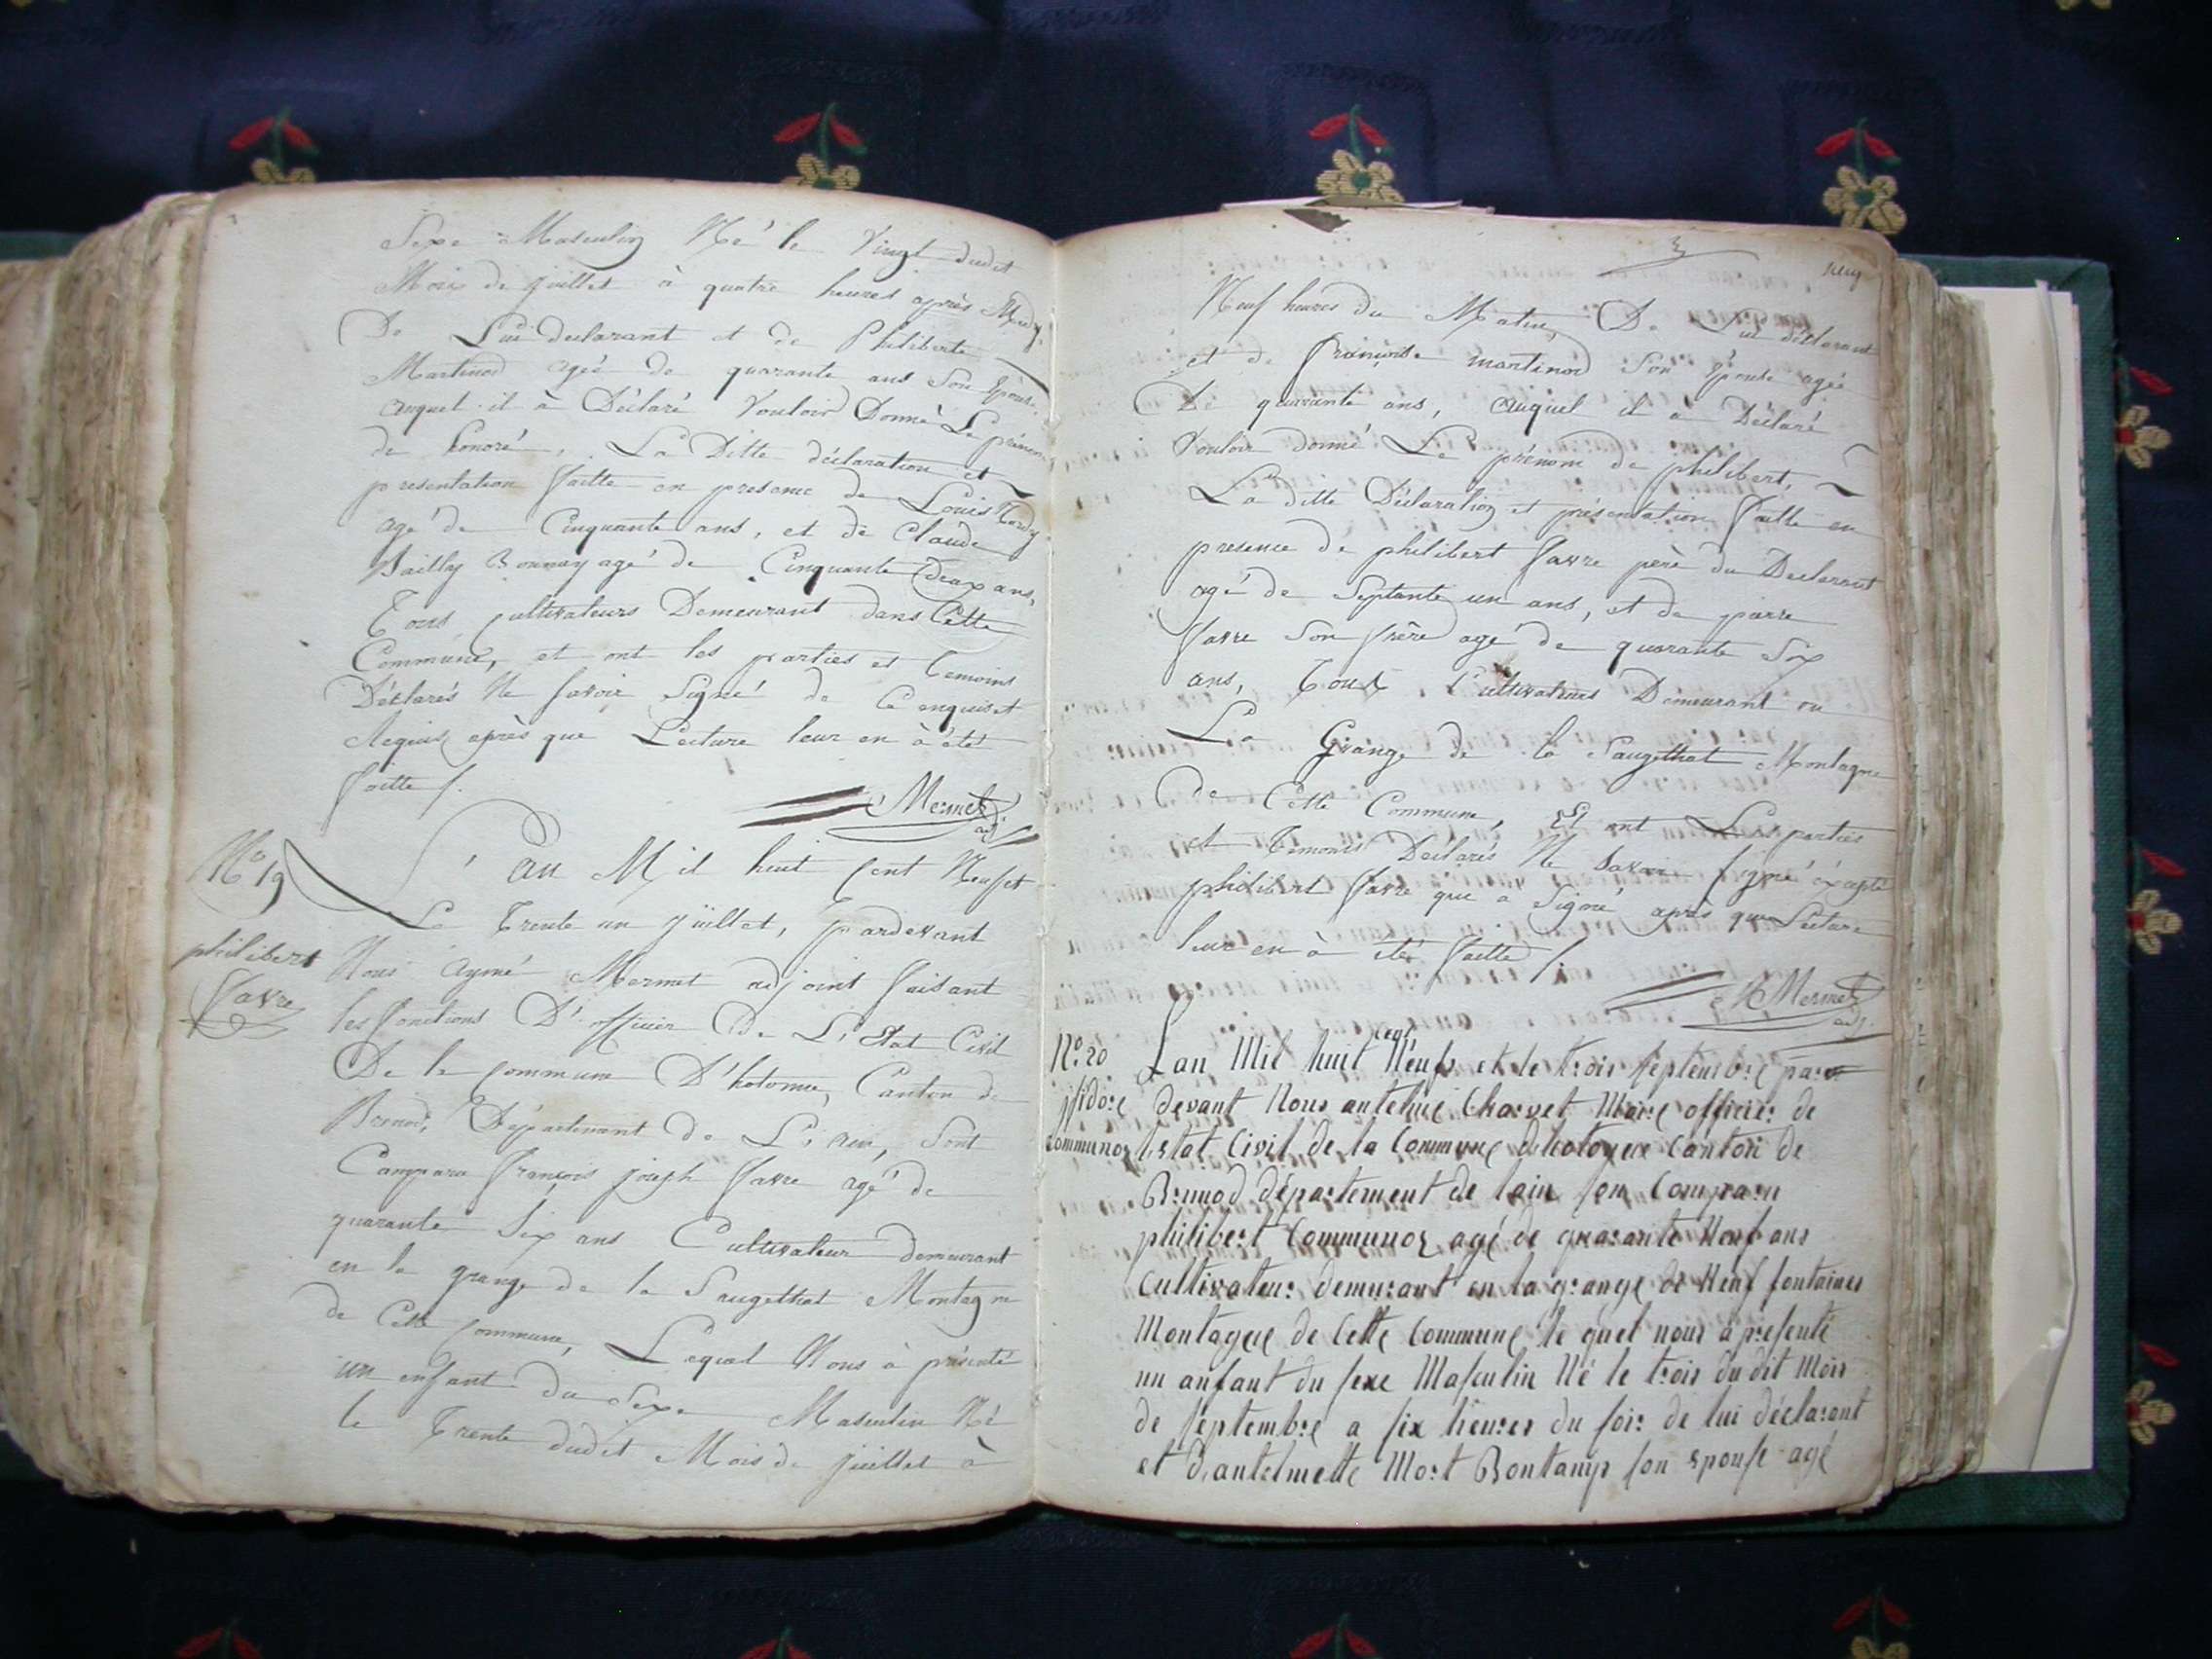 Sexe Masculin Né le Vingt dudit
Mois de juillet à quatre heures après Midy.
De Lui declarant et de Philiberte
Martinod agée de quarante ans Son Epouse,
auquel il à Déclaré Vouloir Donné Le prénom
de honoré, La Ditte déclaration et
presentation faitte en presence de Louis Tardy
agé de Cinquante ans, et de Claude
Bailly agé de Cinquante Deux ans,
Tous Cultivateurs Demeurant dans Cette
Commune, et ont les parties et Temoins
Déclarés Ne Savoir Signé de Ce enquis et
Requis après que Lecture leur en à été
faitte /.
Mermet adj.
N° 19
philibert
favre
L'an Mil huit Cent Neuf et
Le Trente un juillet, pardevant
Nous Aymé Mermet adjoint faisant
les fonctions D'officier De L'Etat Civil
De la Commune D'hotonne, Canton de
Brenod, Département de L'ain, Sont
Comparu françois joseph favre agé de
quarante Six ans Cultivateur demeurant
en la grange de la Saugethat Montagne
de Cette Commune, Lequel Nous à présenté
un enfant du Sexe Masculin Né
le Trente dudit Mois de juillet à
neuf
Neuf heures du Matin, De Lui déclarant
et de françoise martinod Son Epouse agée
De quarante ans, auquel il à Déclaré
Vouloir donné Le prénom de philibert,
La ditte Déclaration et présentation faitte en
presence de philibert favre père du Declarant
agé de Septante un ans, et de pierre
favre Son frère agé de quarante Six
ans, Tous Cultivateurs Demeurant en
La Grange de la Saugethat Montagne
De Cette Commune, Et ont Les parties
et Temoins Déclarés Ne Savoir Signé éxcepté
philibert favre que a Signé après que Lecture
leur en à été faitte /.
Mermet adj.
N° 20
jsidore
Communoz
Lan Mil huit cent Neufs et le trois septembre par
devant Nous antelme Charvet Maire officier de
Lestat Civil de la Commune dhotonne Canton de
Brenod département de lain son Comparu
philibert Communoz agé de quarante Neuf ans
Cultivateur demurant en la grange de Neuf fontaines
Montagne de Cette Commune le quel nous à présenté
un anfant du sexe Masculin Né le trois du dit Mois
de septembre a six heures du soir de lui déclarant
et Dantelmette Mort Bontamp son Epouse agé